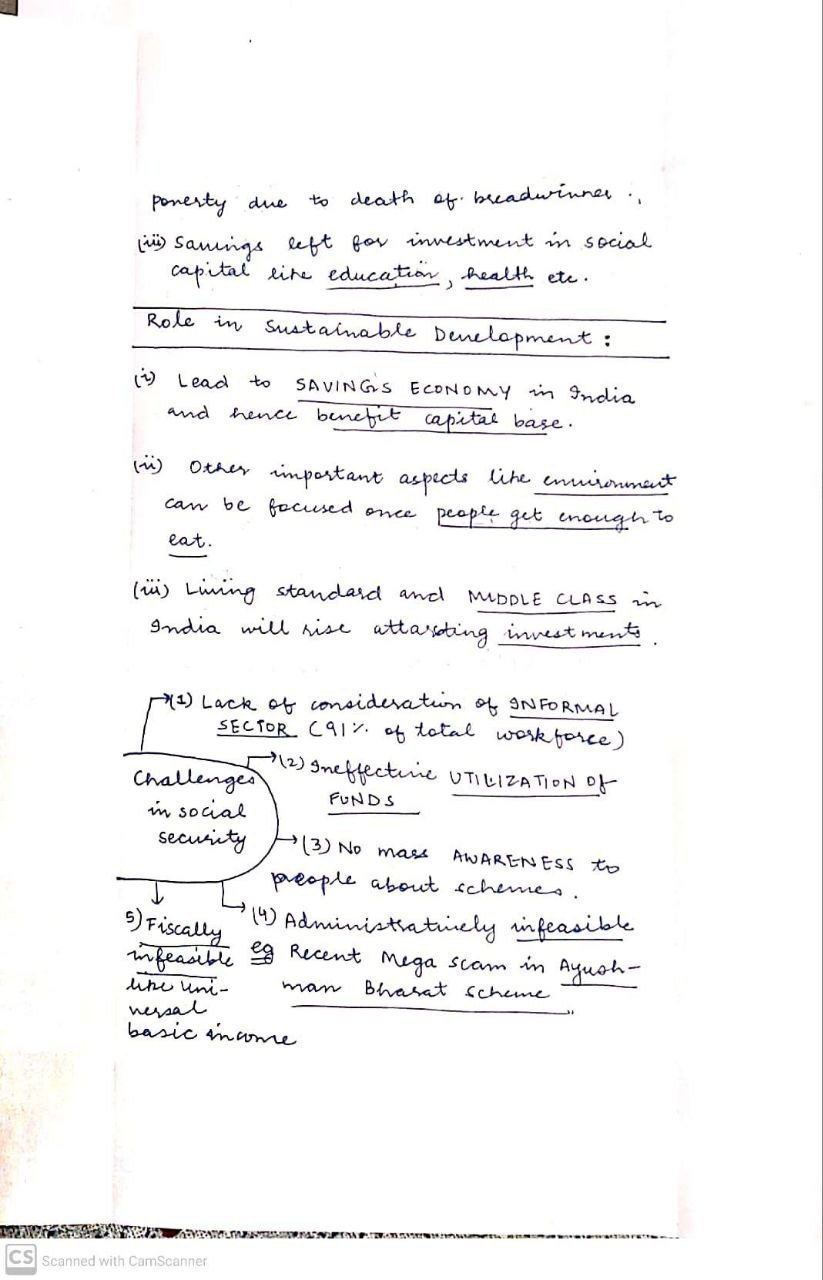 poverty due to death of breadwinner.
(iii) Savings left for investment in social
capital like education, health etc.
Role in Sustainable Development:
(i) Lead to SAVINGS ECONOMY in India
and hence benefit capital base.
(ii) Other important aspects like environment
can be focused once people get enough to
eat.
(iii) Living standard and MIDDLE CLASS in
India will rise attarcting investments.
Challenges
in social
security
(1) Lack of consideration of INFORMAL
SECTOR (91% of total workforce)
(2) Ineffective UTILIZATION Of
FUNDS
(3) No mass AWARENESS to
people about schemes.
(4) Administratively infeasible
eg Recent Mega scam in Ayush-
man Bharat scheme
5) Fiscally
infeasible
like uni-
versal
basic income
CS Scanned with CamScanner